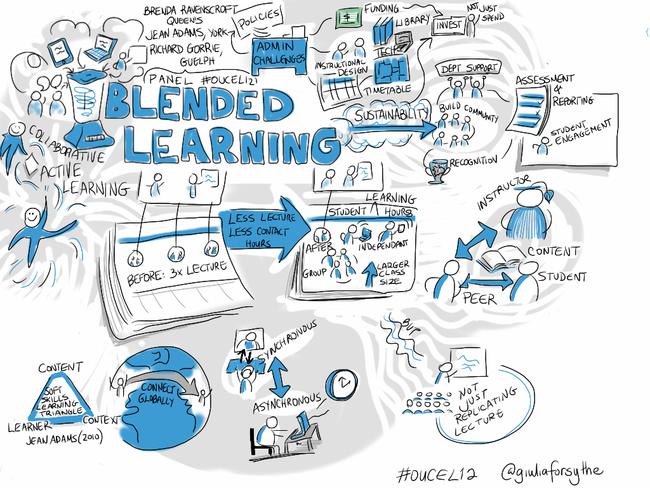 BRENDA RAVENSCROFT
QUEEN'S
JEAN ADAMS, YORK
RICHARD GORRIE,
GUELPH
{PANEL #OUCEL12}
BLENDED
LEARNING
POLICIES
ADMIN
CHALLENGES
$
FUNDING
LIBRARY
INSTRUCTIONAL
DESIGN
TECH
TIMETABLE
INVEST
NOT JUST
SPEND
DEPT SUPPORT
SUSTAINABILITY
BUILD COMMUNITY
RECOGNITION
ASSESSMENT
&
REPORTING
STUDENT
ENGAGEMENT
COLLABORATIVE
ACTIVE
LEARNING
BEFORE: 3x LECTURE
LESS LECTURE
LESS CONTACT
HOURS
LEARNING
STUDENT ^ HOURS
AFTER
INDEPENDANT
GROUP
LARGER
CLASS
SIZE
INSTRUCTOR
CONTENT
STUDENT
PEER
CONTENT
SOFT
SKILLS
LEARNING
TRIANGLE
LEARNER
CONTEXT
JEAN ADAMS (2010)
CONNECT
GLOBALLY
SYNCHRONOUS
ASYNCHRONOUS
BUT
NOT
JUST
REPLICATING
LECTURE
#OUCEL12 @giuliaforsythe